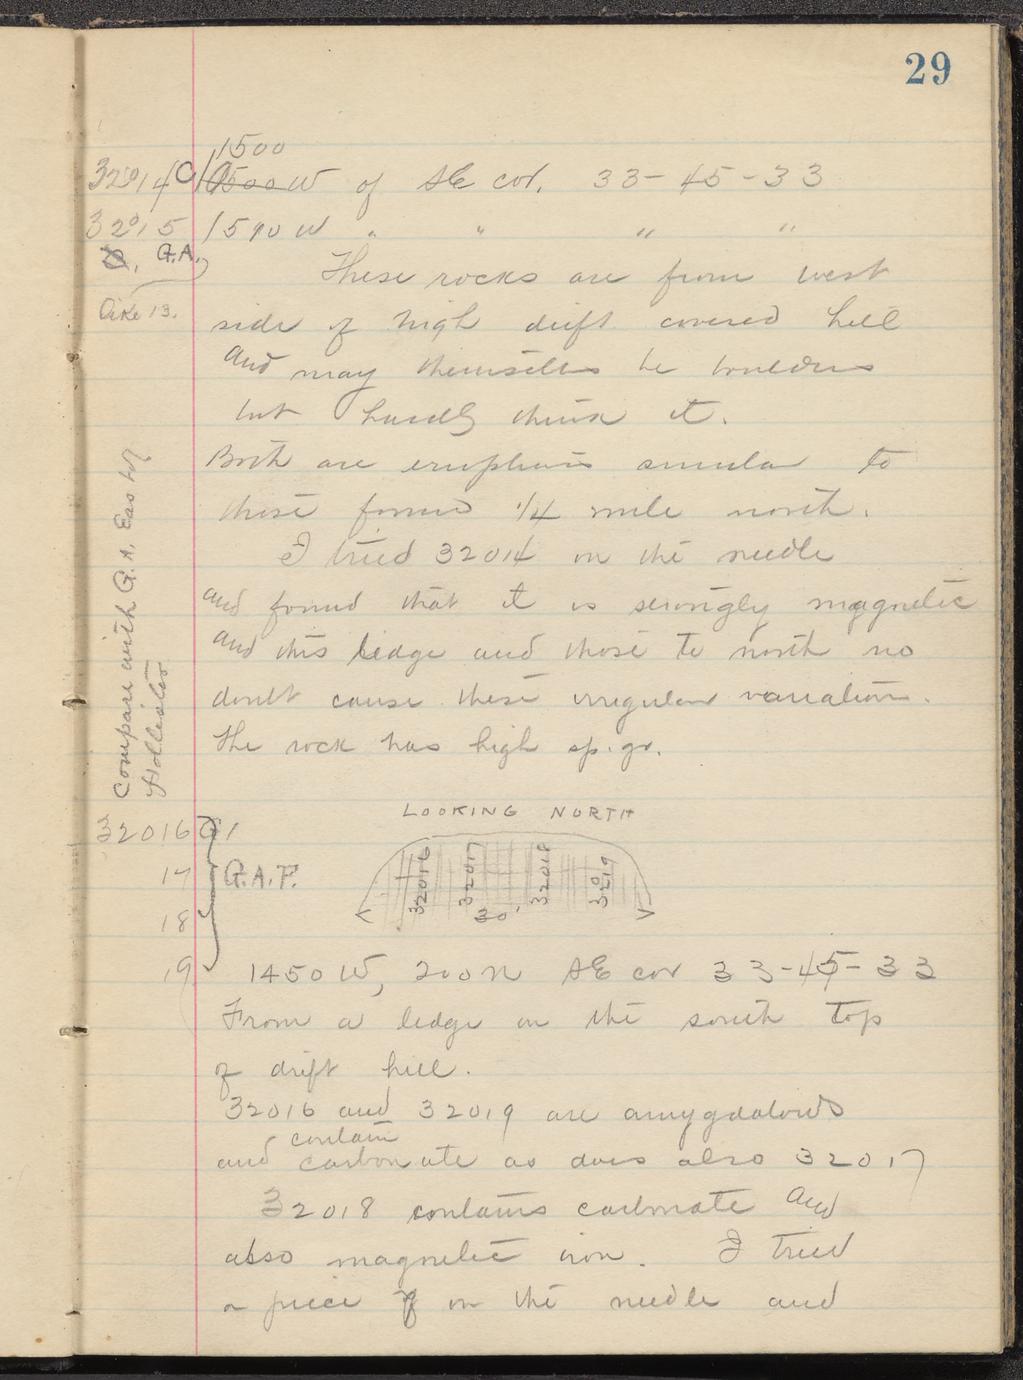 29
1500
32014 C 1500 W of SE cor. 33-45-33
32015 1590 W " " " "
G.A.
Dike 13.
These rocks are from west
side of high drift covered hill
and may themselves be boulders
but hardly think it.
Both are eruptions similar to
those found 1/4 mile north.
I tried 32014 on the needle
and found that it is strongly magnetic
and this ledge and those to north no
doubt cause these irregular variations.
The rock has high sp. gr.
Compare with G.A. East of
Hollister
LOOKING NORTH
32016
17 G.A.F.
18
32016 32017 32018 32019
30'
19 1450 W, 200 N SE cor 33-45-33
From a ledge on the south top
of drift hill.
32016 and 32019 are amygdaloids
contain
and carbonate as does also 32017
32018 contains carbonate and
also magnetic iron. I tried
a piece on the needle and